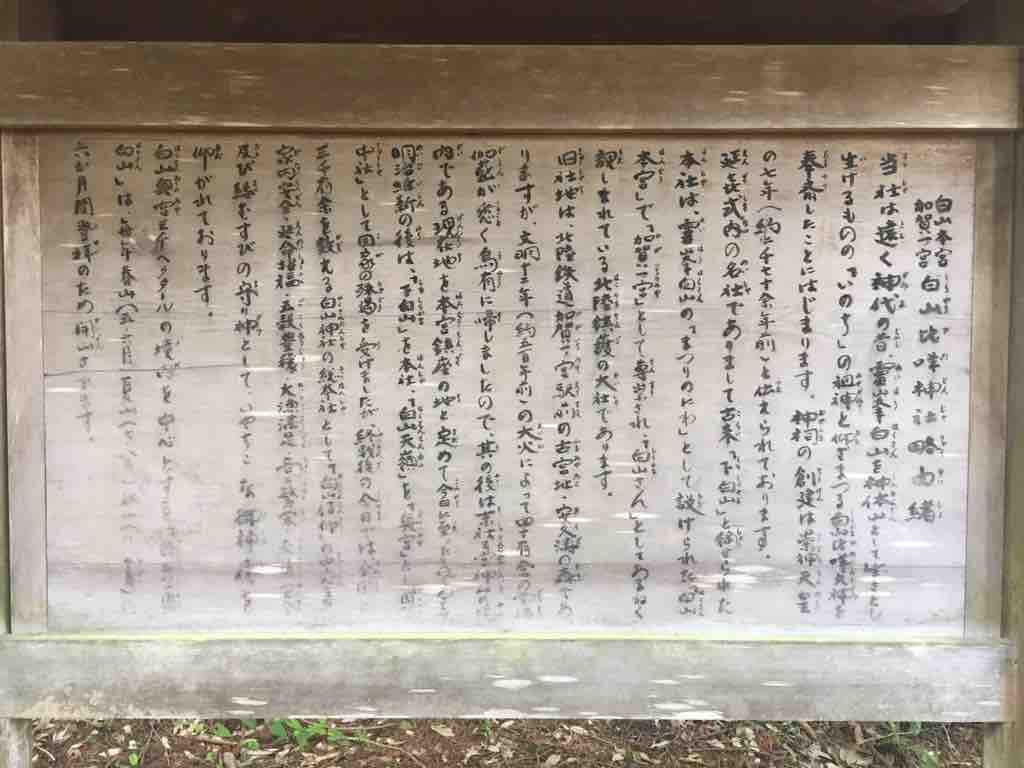 白山本宮
加賀一宮 白山比咩神社略由緒
当社は遠く神代の昔、霊峯白山を神体山として
生けるものの『いのち』の祖神と仰ぎまつる白山比咩大神を
奉斎したことにはじまります。神祠の創建は崇神天皇
の七年(約二千七十余年前)と伝えられております。
延喜式内の名社でありまして古来『下白山』と
本社は、霊峯白山の『まつりのにわ』として設けられた『白山
本宮』で『加賀一宮』として尊崇され、『白山さん』としてあまねく
親しまれている北陸鎮護の大社であります。
旧社地は、北陸鉄道加賀一の宮駅前の古宮址・安久濤の森であ
りますが、文明十二年(約五百年前)の大火によって四十有余の
伽藍が悉く烏有に帰しましたので、其の後は末社
内である現在地を本宮鎮座の地と定めて今日に
明治維新の後は、『下白山』を本社、『白山天嶺』を『奥宮』とし国幣
中社として国家の殊遇を受けましたが終戦後の今日では
三千有余を数える白山神社の総本社として『白山信仰』の中心を
家内安全・延命招福・五穀豊穣・大漁満足
及び縁むすびの守り神として、いやちこなる御神徳を
仰がれております。
白山奥宮三千ヘクタールの境内を中心とする
白山」は、毎年春山(五・六月)夏山
六か月間登拝のため開山されます。